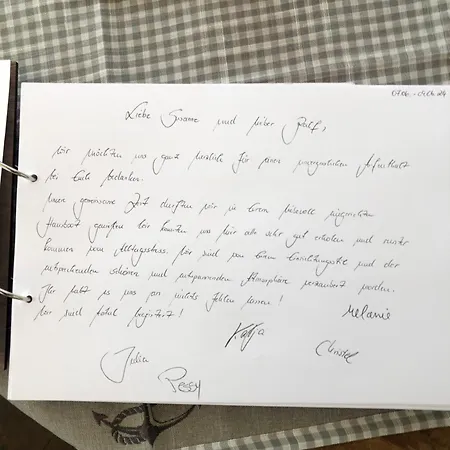 Liebe Susanne und lieber Ralf,
wir möchten uns ganz herzlich für einen unvergesslichen Aufenthalt
bei Euch bedanken.
Unsere gemeinsame Zeit durften wir in Eurem liebevoll eingerichteten
Hausboot genießen. Wir konnten uns hier alle sehr gut erholen und runter
kommen vom Alltagsstress. Wir sind von Eurem Einrichtungsstil und der
entsprechenden schönen und entspannenden Atmosphäre verzaubert worden.
Ihr habt es uns an nichts fehlen lassen!
Wir sind total begeistert!
Melanie
Katja
Christel
Julia
Peggy